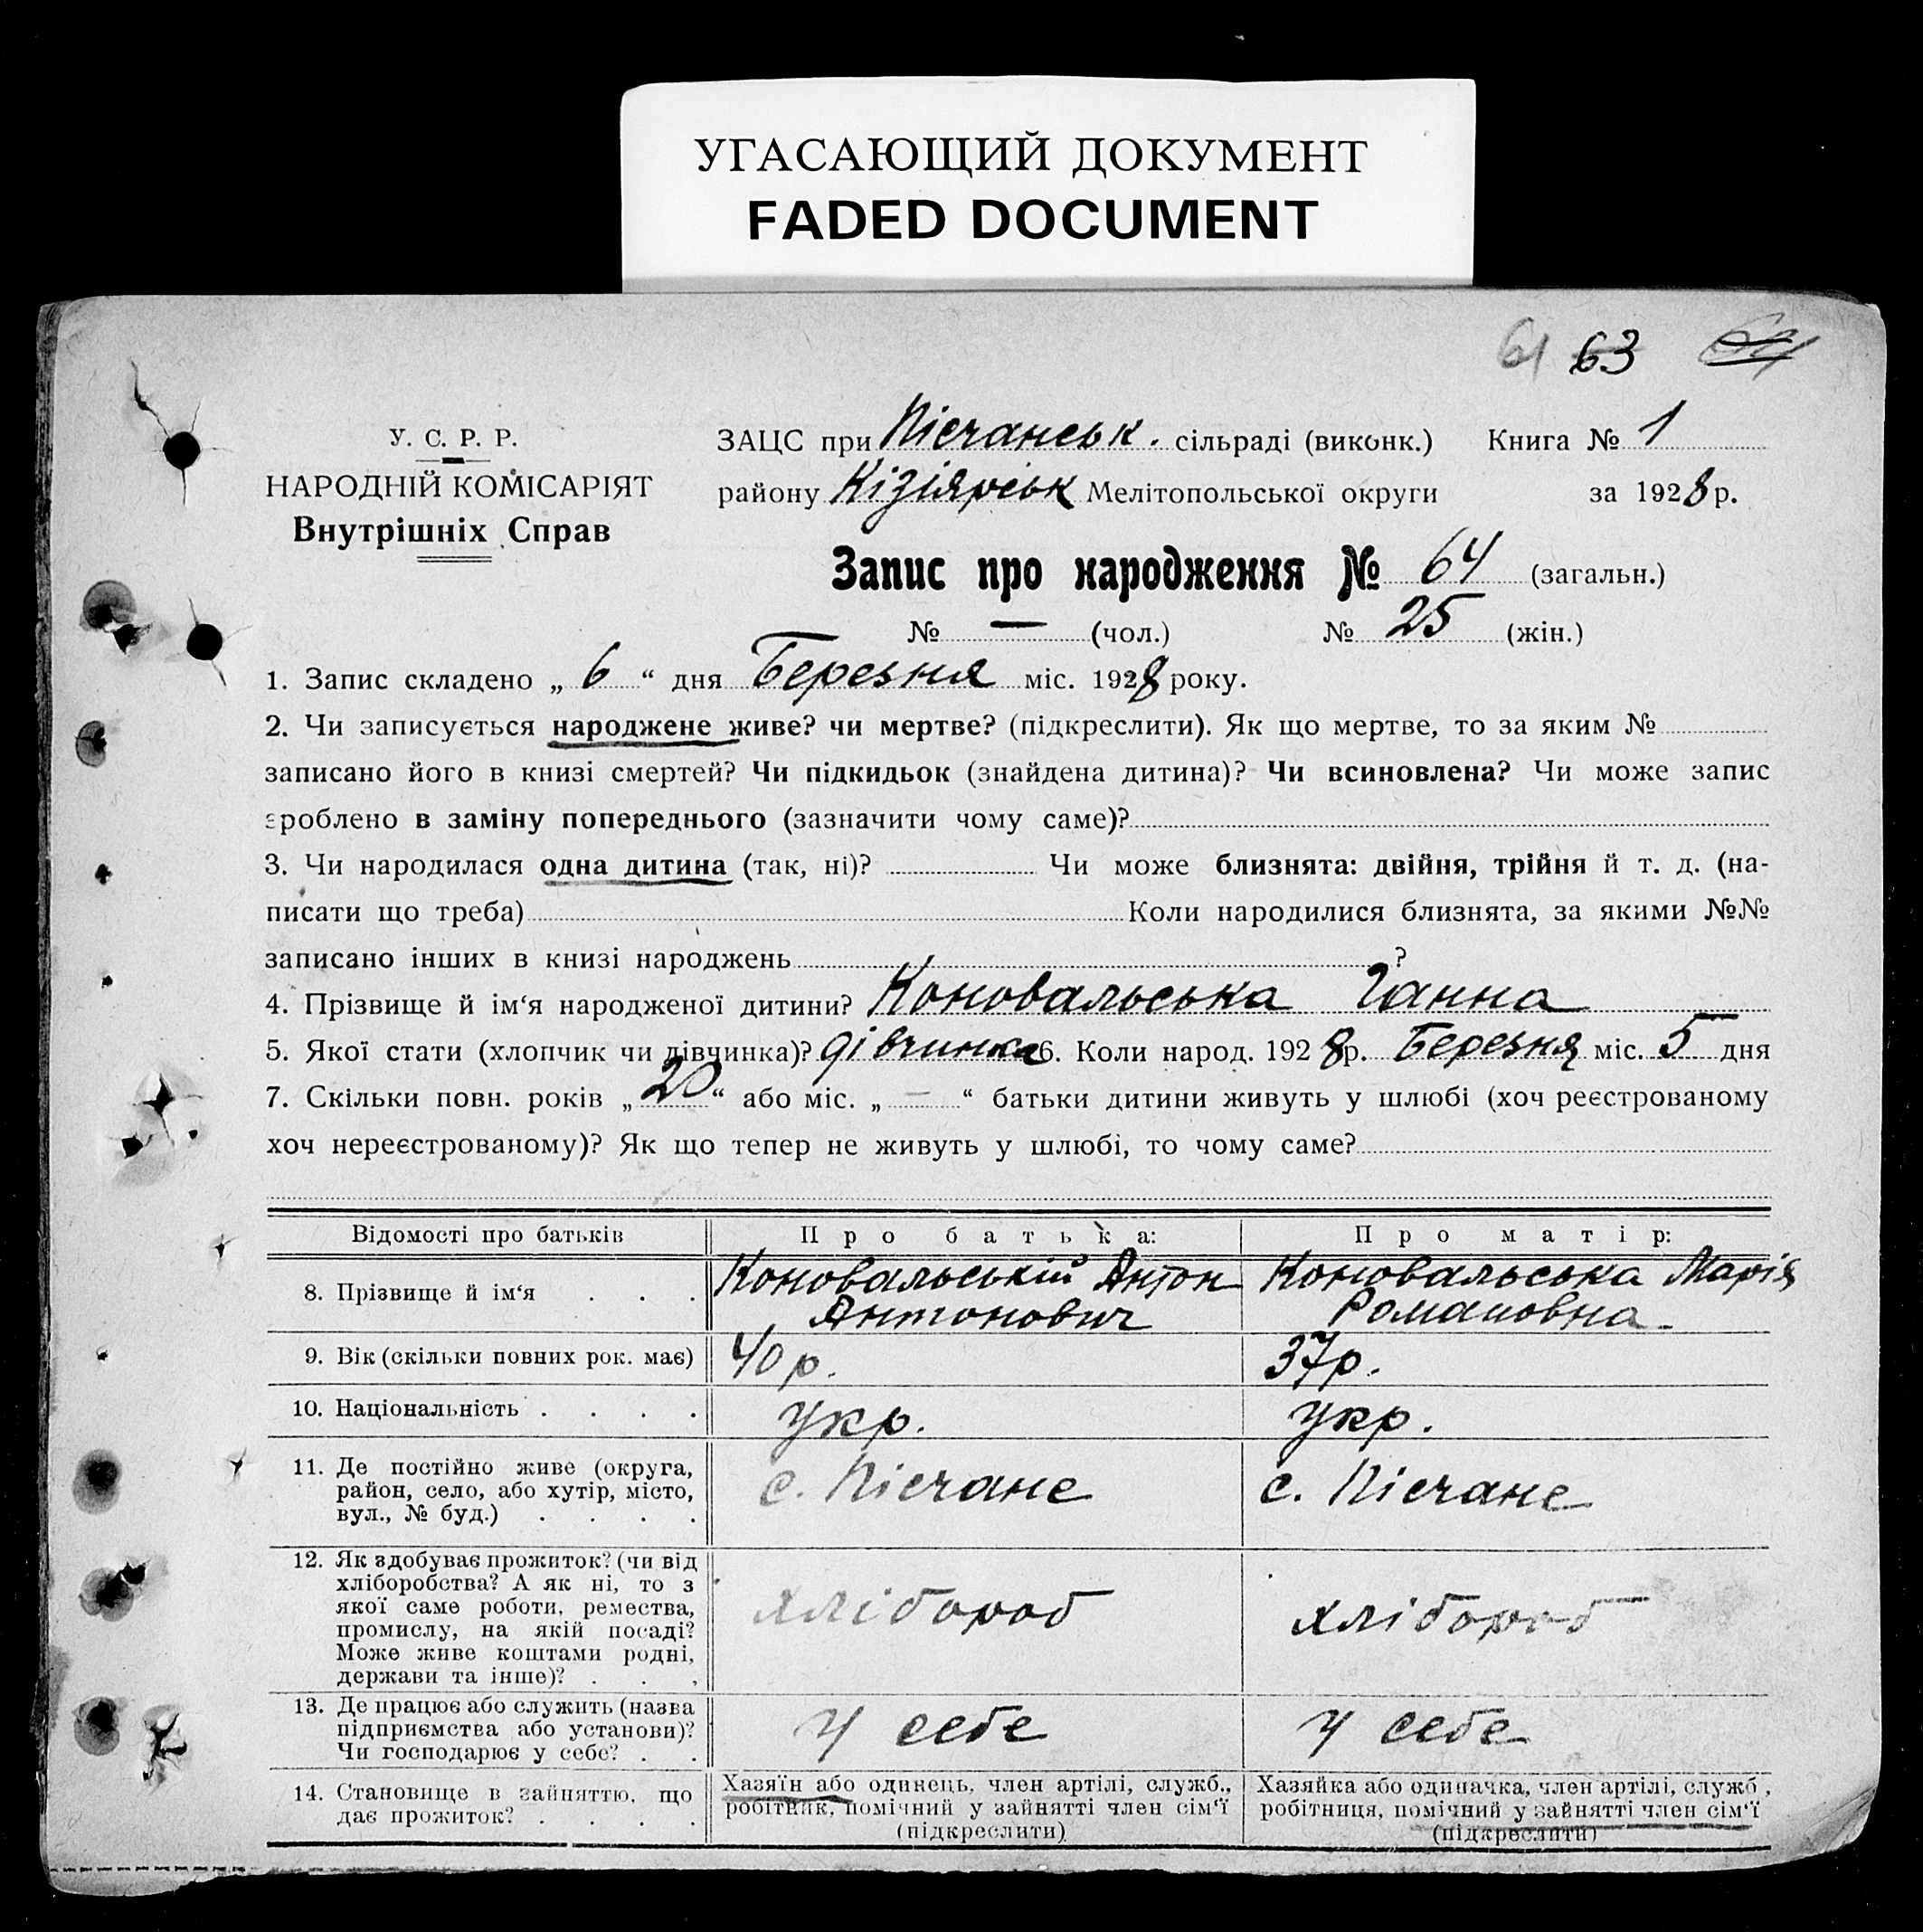 УГАСАЮЩИЙ ДОКУМЕНТ
FADED DOCUMENT
61 63 64
У. С. Р. Р.
НАРОДНІЙ КОМІСАРІЯТ
Внутрішніх Справ
ЗАЦС при Пісчанськ. сільраді (виконк.) Книга № 1
району Кізіярськ Мелітопольської округи за 1928 р.
Запис про народження № 64 (загальн.)
№ — (чол.) № 25 (жін.)
1. Запис складено „ 6 “ дня Березня міс. 1928 року.
2. Чи записується народжене живе? чи мертве? (підкреслити). Як що мертве, то за яким №
записано його в книзі смертей? Чи підкидьок (знайдена дитина)? Чи всиновлена? Чи може запис
зроблено в заміну попереднього (зазначити чому саме)?
3. Чи народилася одна дитина (так, ні)? Чи може близнята: двійня, трійня й т. д. (на-
писати що треба) Коли народилися близнята, за якими №№
записано інших в книзі народжень ?
4. Прізвище й ім‘я народженої дитини? Коновальська Ганна
5. Якої стати (хлопчик чи дівчинка)? дівчинка 6. Коли народ. 1928 р. Березня міс. 5 дня
7. Скільки повн. років „ 20 “ або міс. „ — “ батьки дитини живуть у шлюбі (хоч реєстрованому
хоч нереєстрованому)? Як що тепер не живуть у шлюбі, то чому саме?
Відомості про батьків
Про батька:
Про матір:
8. Прізвище й ім‘я . . .
Коновальський Антон
Антонович
Коновальська Марія
Романовна
9. Вік (скільки повних рок. має)
40 р.
37 р.
10. Національність . . . .
Укр.
Укр.
11. Де постійно живе (округа,
район, село, або хутір, місто,
вул., № буд.) . . . .
с. Пісчане
с. Пісчане
12. Як здобуває прожиток? (чи від
хліборобства? А як ні, то з
якої саме роботи, ремества,
промислу, на якій посаді?
Може живе коштами родні,
держави та інше)? . . .
хлібороб
хлібороб
13. Де працює або служить (назва
підприємства або установи)?
Чи господарює у себе? . .
У себе
У себе
14. Становище в зайняттю, що
дає прожиток? . . . .
Хазяїн або одинець, член артілі, служб.,
робітник, помічний у зайнятті член сім‘ї
(підкреслити)
Хазяйка або одиначка, член артілі, служб.,
робітниця, помічний у зайнятті член сім‘ї
(підкреслити)